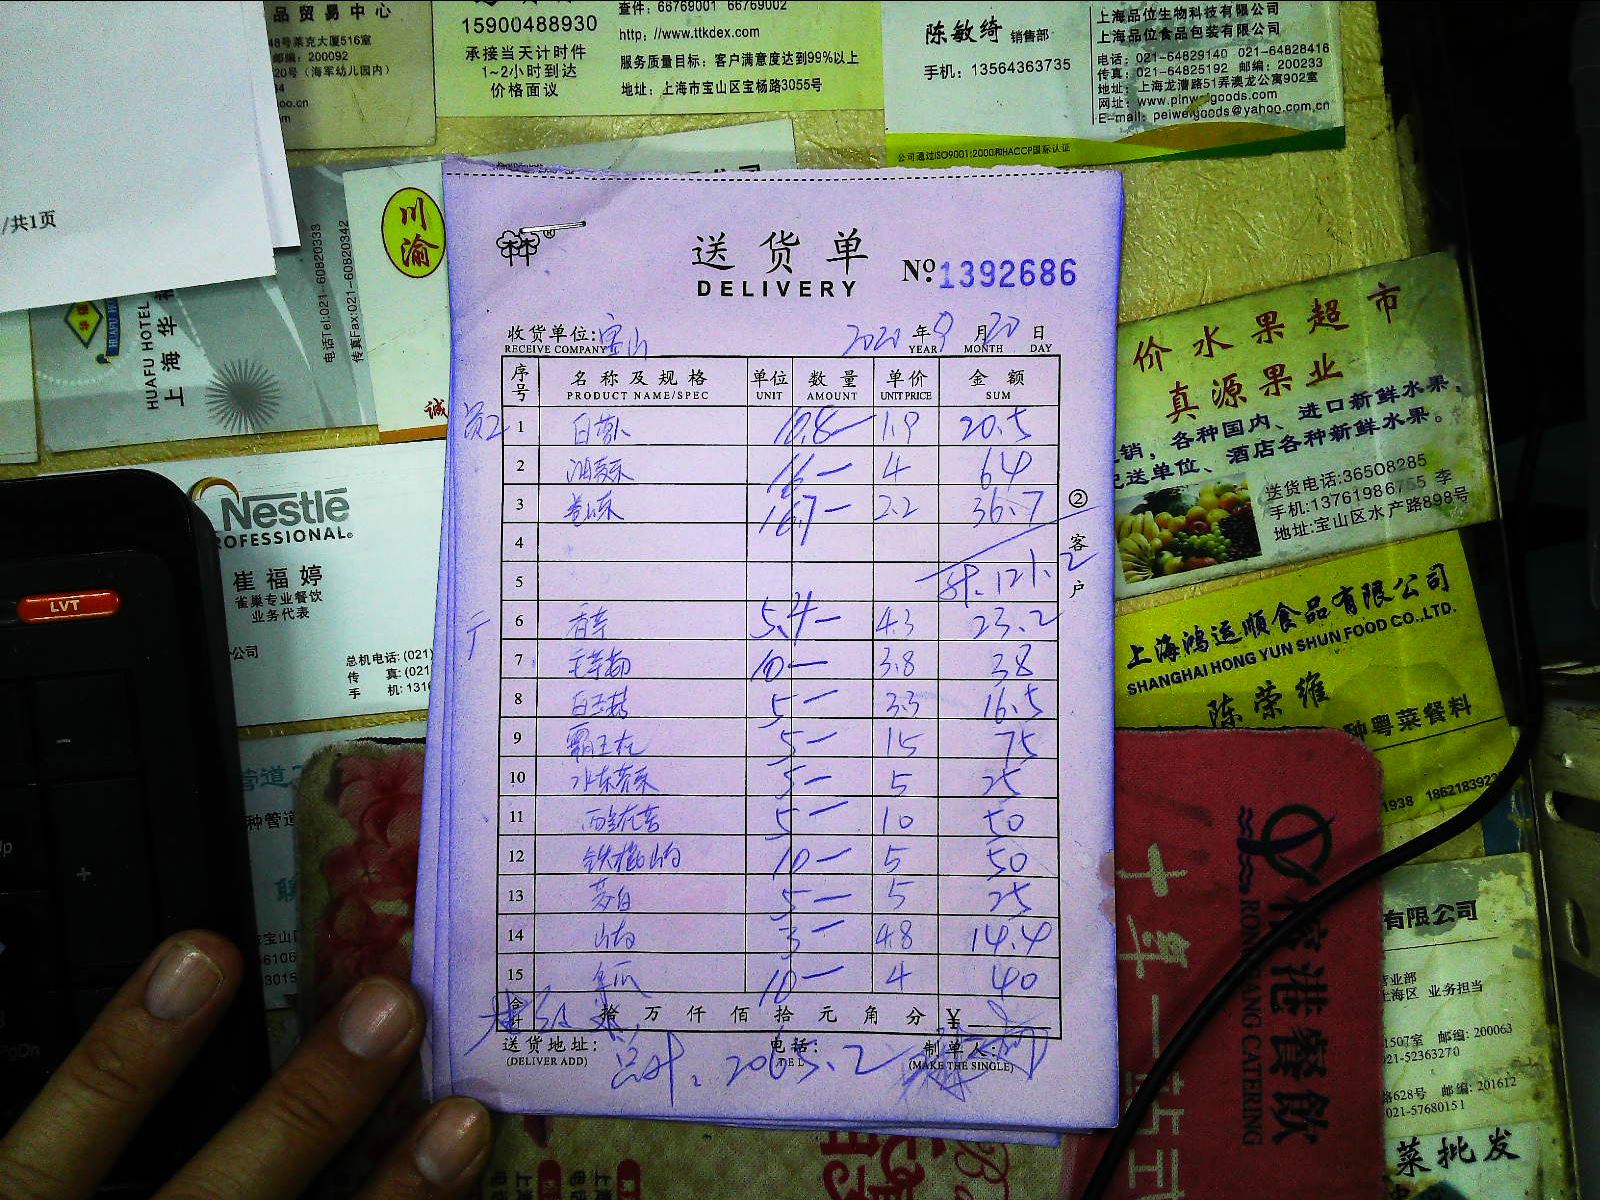 品贸易中心
48号莱克大厦516室
邮编：200092
20号（海军幼儿园内）
15900488930
承接当天计时件
1~2小时到达
价格面议
查件：66769001 66769002
http://www.ttkdex.com
服务质量目标：客户满意度达到99%以上
地址：上海市宝山区宝杨路3055号
陈敏绮 销售部
手机：13564363735
上海品位生物科技有限公司
上海品位食品包装有限公司
电话：021-64829140 021-64828416
传真：021-64825192 邮编：200233
地址：上海龙漕路51弄澳龙公寓902室
网址：www.pinweigoods.com
E-mail：peiweigoods@yahoo.com.cn
公司通过ISO9001:2000和HACCP国际认证
/共1页
川渝
诚
HUAFU HOTEL
上海华
电话Tel:021-60820333
传真Fax:021-60820342
送货单
DELIVERY
No 1392686
收货单位：宝山
RECEIVE COMPANY
2020 年 9 月 20 日
YEAR MONTH DAY
序号 名称及规格 单位 数量 单价 金额
PRODUCT NAME/SPEC UNIT AMOUNT UNIT PRICE SUM
员工 1 白萝卜 10.8 1.9 20.5
2 16 4 64
3 卷心菜 16.7 2.2 36.7
4
5 计.121.2
6 香芋 5.4 4.3 23.2
7 毛芋艿 10 3.8 38
8 白玉菇 5 3.3 16.5
9 霸王花 5 15 75
10 水东芥菜 5 5 25
11 西兰花苔 5 10 50
12 铁棍山药 10 5 50
13 茭白 5 5 25
14 山药 3 4.8 14.4
15 冬瓜 10 4 40
合计 拾万仟佰拾元角分 ¥
送货地址： 电话： 制单人：
(DELIVER ADD) TEL (MAKE THE SINGLE)
总计.2065.2
②客户
价水果超市
真源果业
销，各种国内、进口新鲜水果，
配送单位、酒店各种新鲜水果。
送货电话:36508285
手机:13761986755 李
地址:宝山区水产路898号
Nestlé
PROFESSIONAL.
崔福婷
雀巢专业餐饮
业务代表
公司
总机电话：(021)
传 真：(021
手 机：1316
LVT
上海鸿运顺食品有限公司
SHANGHAI HONG YUN SHUN FOOD CO.,LTD.
陈荣维
种粤菜餐料
1938 1862183922
管道
种管道
宝山
PgDn
榕港餐飲
RONGGANG CATERING
有限公司
营业部
上海区 业务担当
1507室 邮编：200063
021-52363270
路628号 邮编：201612
021-57680151
菜批发